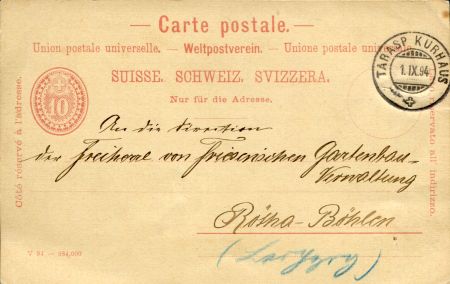 Carte postale.
Union postale universelle. — Weltpostverein. — Unione postale universale.
SUISSE. SCHWEIZ. SVIZZERA.
Nur für die Adresse.
10
TARASP KURHAUS
1. IX. 94
Côté réservé à l'adresse.
An die Direction
der Freiherrl von Friesenischen Gartenbau-
Verwaltung
Rötha-Böhlen
(Leipzig)
riservato all' indirizzo.
V 94 — 384,000